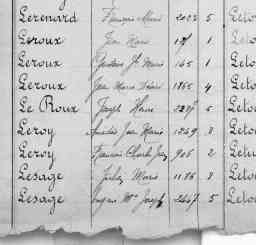 Lerenard François Marie 2022 5 Leto
Leroux Jean Marie 1 Leto
Leroux Gustave Jn Marie 165 1 Leto
Leroux Jean Marie 1865 4 Leto
Le Roux Joseph Pierre 5 Leto
Leroy Jean Marie 1269 3 Leto
Leroy François Charles 905 2 Letu
Lesage Jules Marie 1186 3 Letu
Lesage Eugène Mie Joseph 2467 5 Letou